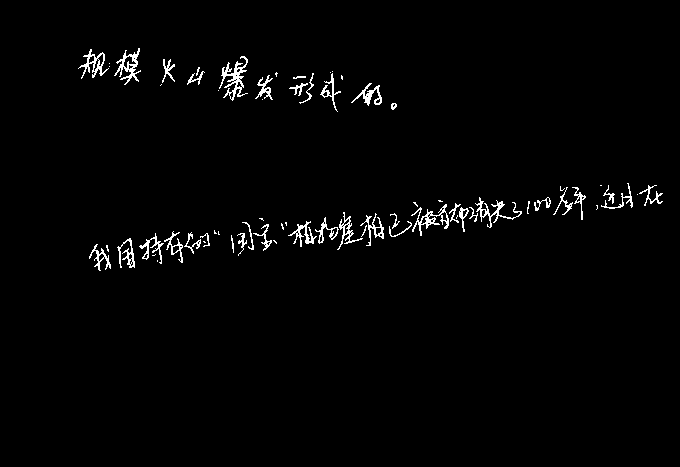 规模火山爆发形成的。
我国特有的“国宝”植物崖柏已被宣布消失了100多年,近日在